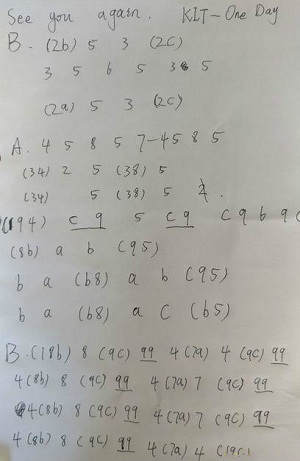 See you again. KIT-One Day
B. (2b) 5 3 (2C)
3 5 6 5 3 5
(2a) 5 3 (2C)
A. 4 5 8 5 7-45 8 5
(34) 2 5 (38) 5
(34) 5 (38) 5 2.
(194) c 9 5 c 9 c 9 b 9 c
(8b) a b (95)
b a (b8) a b (95)
b a (b8) a C (b5)
B.(18b) 8 (9C) 99 4(7a) 4 (9C) 99
4(8b) 8 (9C) 99 4(7a) 7 (9C) 99
4(8b) 8 (9C) 99 4(7a) 7 (9C) 99
4(8b) 8 (9C) 99 4(7a) 4 (19C)